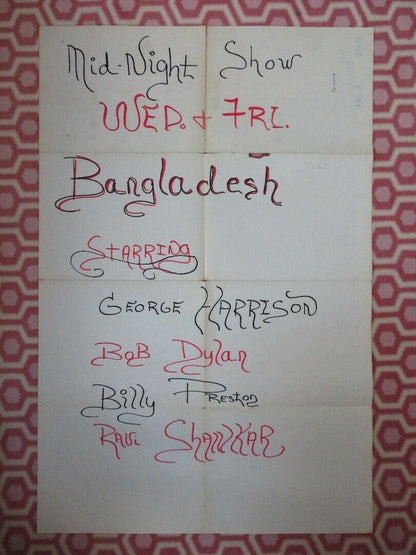 Mid-Night Show
WED. & FRI.
Bangladesh
STARRING
GEORGE HARRISON
BOB Dylan
Billy PRESTON
RAVI SHANKAR